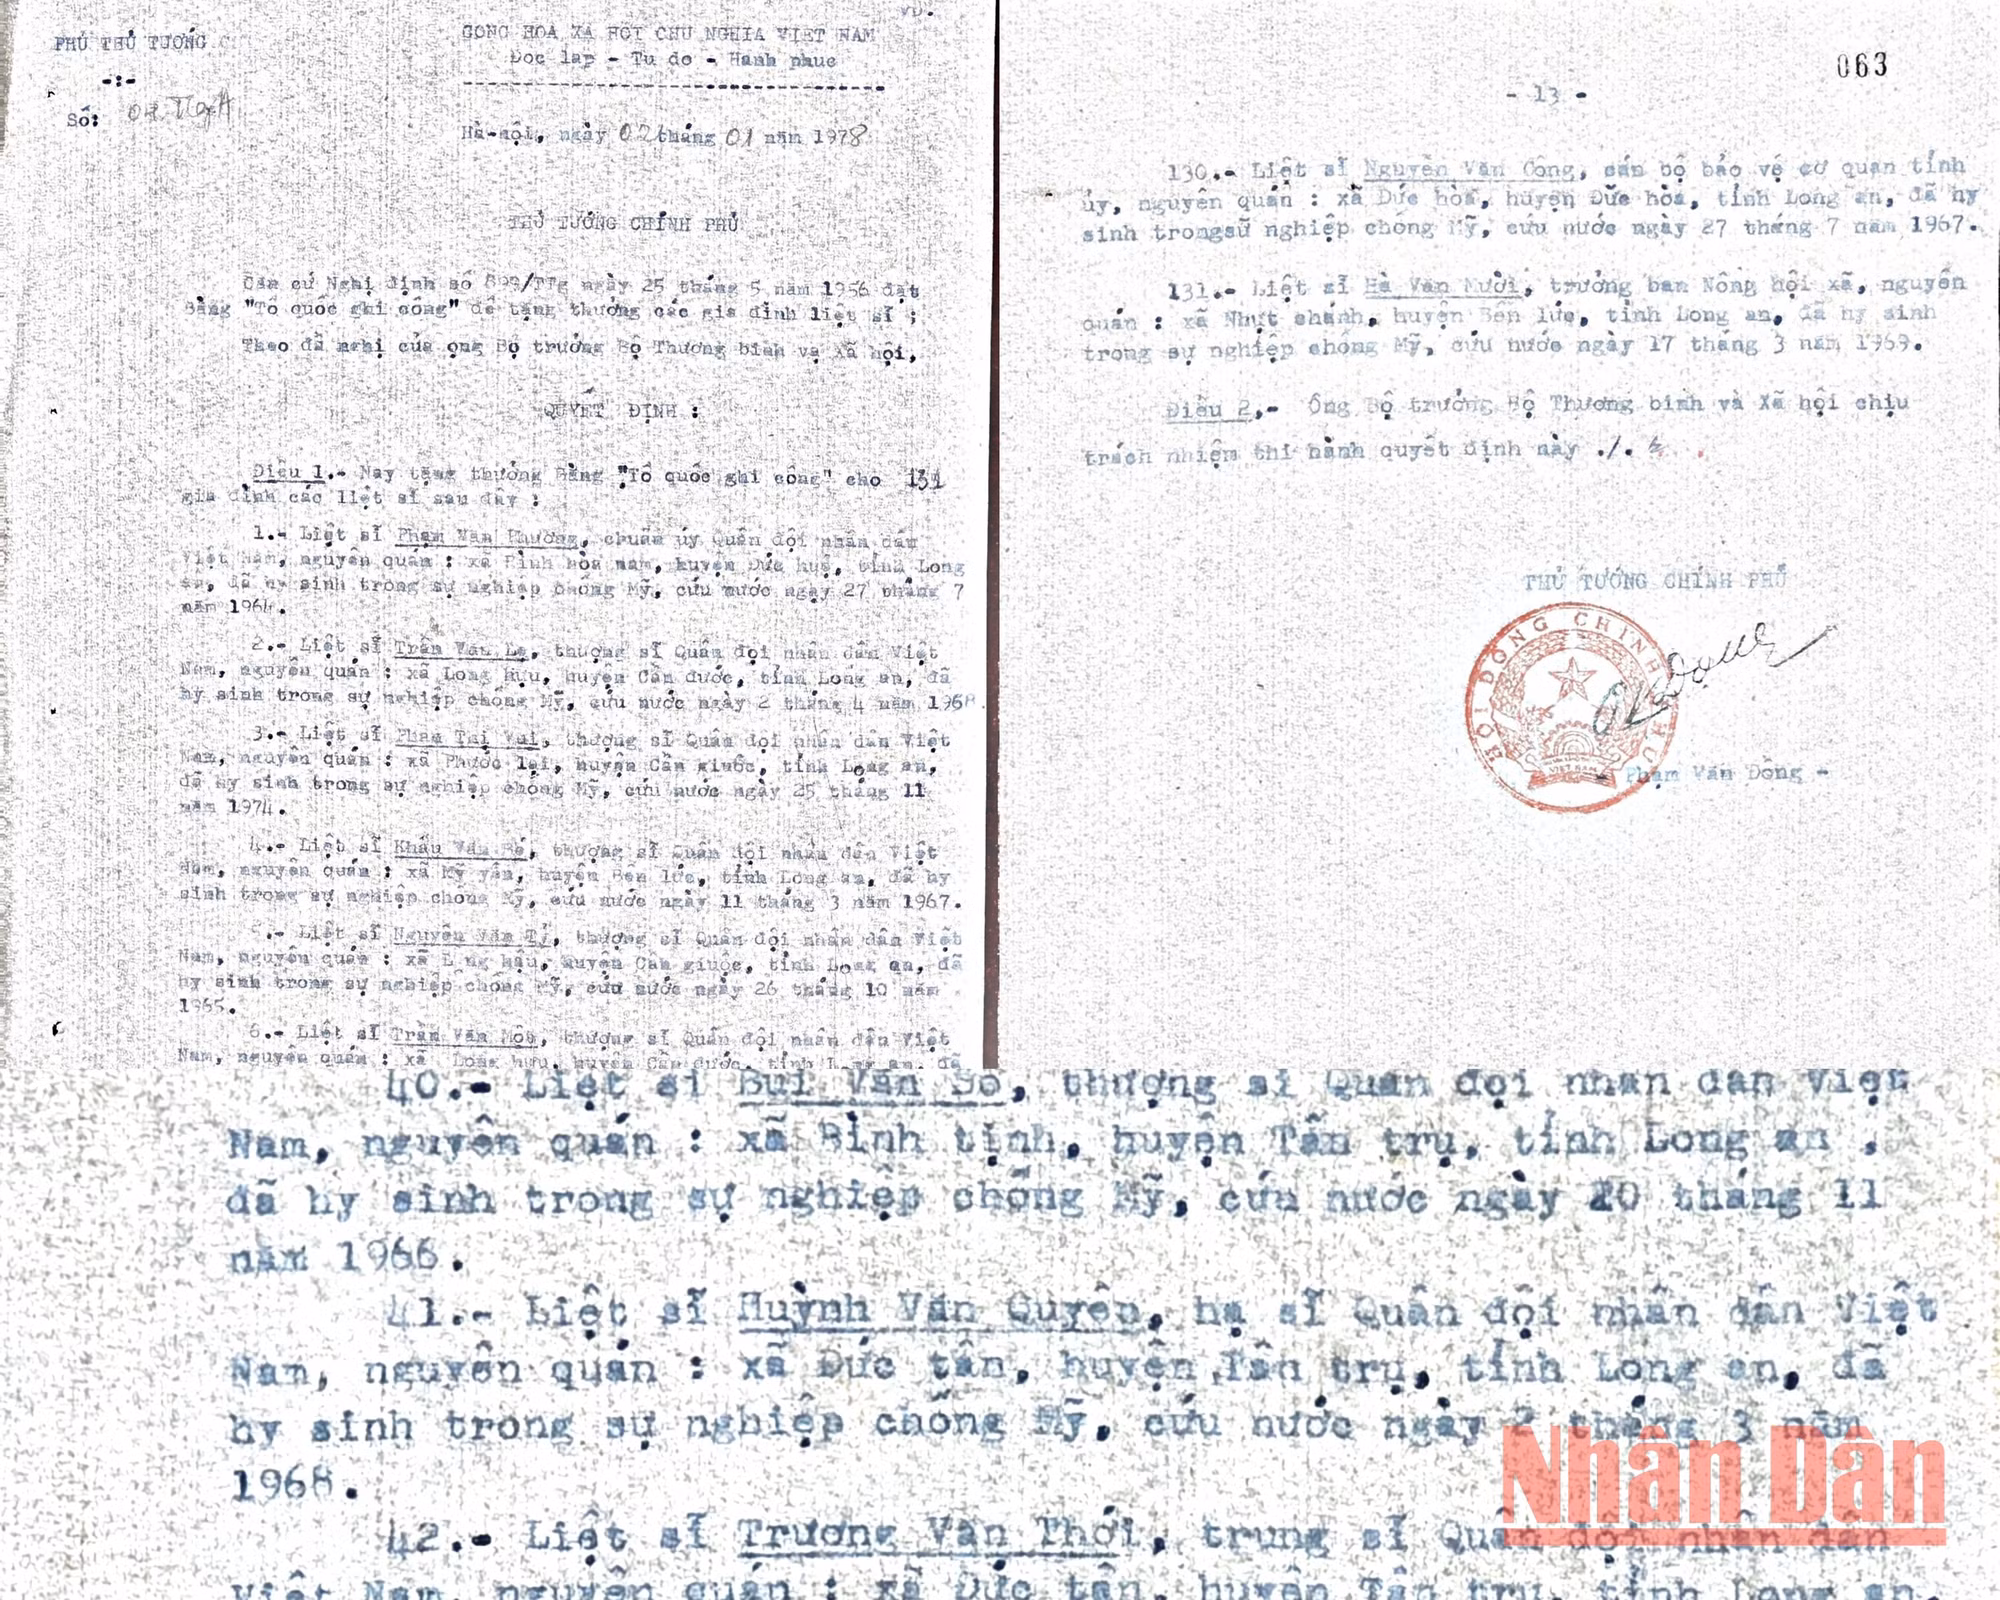 PHỦ THỦ TƯỚNG
-:-
Số:
CỘNG HÒA XÃ HỘI CHỦ NGHĨA VIỆT NAM
Độc lập - Tự do - Hạnh phúc
Hà-nội, ngày 02 tháng 01 năm 1978
THỦ TƯỚNG CHÍNH PHỦ
Căn cứ Nghị định số 899/TTg ngày 25 tháng 5 năm 1956 đặt
Bằng "Tổ quốc ghi công" để tặng thưởng các gia đình liệt sĩ ;
Theo đề nghị của ông Bộ trưởng Bộ Thương binh và Xã hội,
QUYẾT ĐỊNH :
Điều 1.- Nay tặng thưởng Bằng "Tổ quốc ghi công" cho 131
gia đình các liệt sĩ sau đây :
1.- Liệt sĩ Phạm Văn Phương, chuẩn úy Quân đội nhân dân
Việt Nam, nguyên quán : xã Bình hòa nam, huyện Đức huệ, tỉnh Long
an, đã hy sinh trong sự nghiệp chống Mỹ, cứu nước ngày 27 tháng 7
năm 1964.
2.- Liệt sĩ Trần Văn Le, thượng sĩ Quân đội nhân dân Việt
Nam, nguyên quán : xã Long hựu, huyện Cần đước, tỉnh Long an, đã
hy sinh trong sự nghiệp chống Mỹ, cứu nước ngày 2 tháng 4 năm 1968.
3.- Liệt sĩ Phan Thị Vui, thượng sĩ Quân đội nhân dân Việt
Nam, nguyên quán : xã Phước lại, huyện Cần giuộc, tỉnh Long an,
đã hy sinh trong sự nghiệp chống Mỹ, cứu nước ngày 25 tháng 11
năm 1974.
4.- Liệt sĩ Khấu Văn Bé, thượng sĩ Quân đội nhân dân Việt
Nam, nguyên quán : xã Mỹ yên, huyện Bến lức, tỉnh Long an, đã hy
sinh trong sự nghiệp chống Mỹ, cứu nước ngày 11 tháng 3 năm 1967.
5.- Liệt sĩ Nguyễn Văn Tý, thượng sĩ Quân đội nhân dân Việt
Nam, nguyên quán : xã Long hậu, huyện Cần giuộc, tỉnh Long an, đã
hy sinh trong sự nghiệp chống Mỹ, cứu nước ngày 26 tháng 10 năm
1965.
6.- Liệt sĩ Trần Văn Một, thượng sĩ Quân đội nhân dân Việt
Nam, nguyên quán : xã Long hựu, huyện Cần đước, tỉnh Long an, đã
063
- 13 -
130.- Liệt sĩ Nguyễn Văn Công, cán bộ bảo vệ cơ quan tỉnh
ủy, nguyên quán : xã Đức hòa, huyện Đức hòa, tỉnh Long an, đã hy
sinh trong sữ nghiệp chống Mỹ, cứu nước ngày 27 tháng 7 năm 1967.
131.- Liệt sĩ Hà Văn Mười, trưởng ban Nông hội xã, nguyên
quán : xã Nhựt chánh, huyện Bến lức, tỉnh Long an, đã hy sinh
trong sự nghiệp chống Mỹ, cứu nước ngày 17 tháng 3 năm 1969.
Điều 2,- Ông Bộ trưởng Bộ Thương binh và Xã hội chịu
trách nhiệm thi hành quyết định này ./.
THỦ TƯỚNG CHÍNH PHỦ
HỘI ĐỒNG CHÍNH PHỦ
VIỆT NAM
- Phạm Văn Đồng -
40.- Liệt sĩ Bùi Văn Sô, thượng sĩ Quân đội nhân dân Việt
Nam, nguyên quán : xã Bình tịnh, huyện Tân trụ, tỉnh Long an ,
đã hy sinh trong sự nghiệp chống Mỹ, cứu nước ngày 20 tháng 11
năm 1966.
41.- Liệt sĩ Huỳnh Văn Quyên, hạ sĩ Quân đội nhân dân Việt
Nam, nguyên quán : xã Đức tân, huyện Tân trụ, tỉnh Long an, đã
hy sinh trong sự nghiệp chống Mỹ, cứu nước ngày 2 tháng 3 năm
1968.
42.- Liệt sĩ Trương Văn Thới, trung sĩ Quân đội nhân dân
Việt Nam, nguyên quán : xã Đức tân, huyện Tân trụ, tỉnh Long an,
Nhân Dân